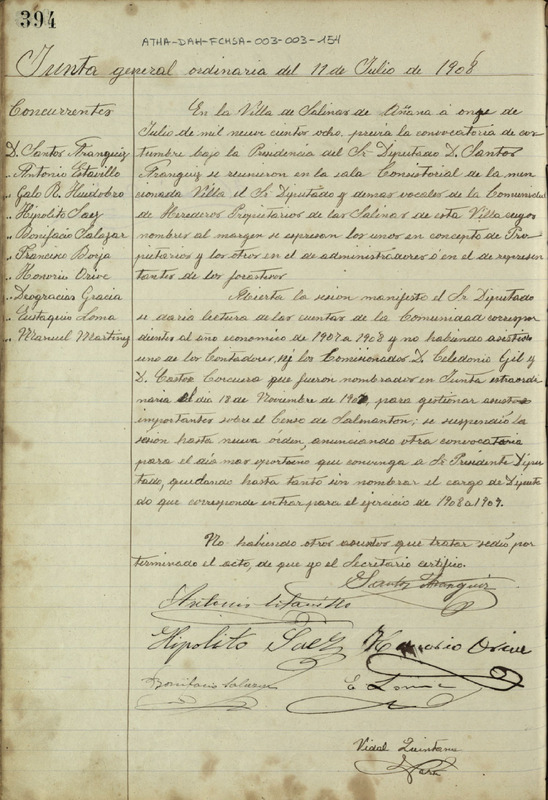 394
ATHA-DAH-FCHSA-003-003-154
Junta general ordinaria del 11 de Julio de 1908
Concurrentes
D. Santos Franguiz
„ Antonio Otavillo
„ Galo R. Huidobro
„ Hipolito Saez
„ Bonifacio Salazar
„ Francisco Borja
„ Honorio Orive
„ Deogracias Gracia
„ Eustaquio Loma
„ Manuel Martinez
En la Villa de Salinas de Añana á onze de
Julio de mil nueve cientos ocho. previa la convocatoria de cos-
tumbre bajo la Presidencia del Sr Diputado D. Santos
Franguiz se reunieron en la sala Consistorial de la men-
cionada Villa el Sr Diputado y demas vocales de la Comunidad
de Herederos Propietarios de las Salinas de esta Villa cuyos
nombres al margen se espresan los unos en concepto de Pro-
pietarios y los otros en el de administradores ó en el de represen-
tantes de los forasteros
Abierta la sesion manifestó el Sr Diputado
se daria lectura de las cuentas de la Comunidad correspon-
dientes al año economico de 1907 a 1908 y no habiendo asistido
uno de los Contadores, ni los Comisionados D. Celedonio Gil y
D. Castor Corcuera que fueron nombrados en Junta estraordi-
naria el dia 18 de Noviembre de 1907, para gestionar asuntos
importantes sobre el Censo de Salmanton; se suspendió la
sesion hasta nueva orden, anunciando otra convocatoria
para el dia mas oportuno que convenga a Sr Presidente Dipu-
tado, quedando hasta tanto sin nombrar el cargo de Diputa-
do que corresponde entrar para el ejercicio de 1908 a 1909.
No habiendo otros asuntos que tratar se dió por
terminado el acto, de que yo el Secretario certifico.
Santos Franguiz
Antonio Otavillo
Hipolito Saez Honorio Orive
Bonifacio Salazar E Loma
Vidal Quintana